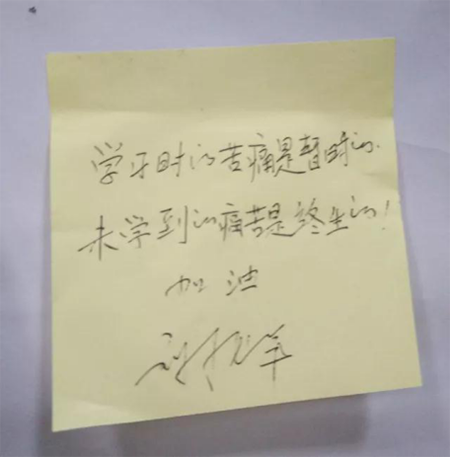 学牙时的苦痛是暂时的.
未学到的痛苦是终生的!
加油